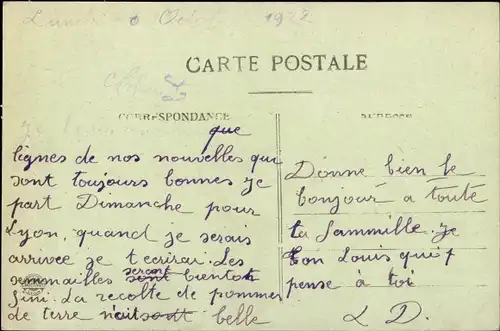 Lundi 1922
CARTE POSTALE
CORRESPONDANCE
ADRESSE
que
lignes de nos nouvelles qui
sont toujours bonnes je
part Dimanche pour
Lyon, quand je serais
arrivee je t ecrirai. Les
semmailles sont seront bientot
fini. La recolte de pommes
de terre n'ait sont belle
Donne bien le
bonjour a toute
ta fammille. Je
ton Louis qui
pense à toi
L D.